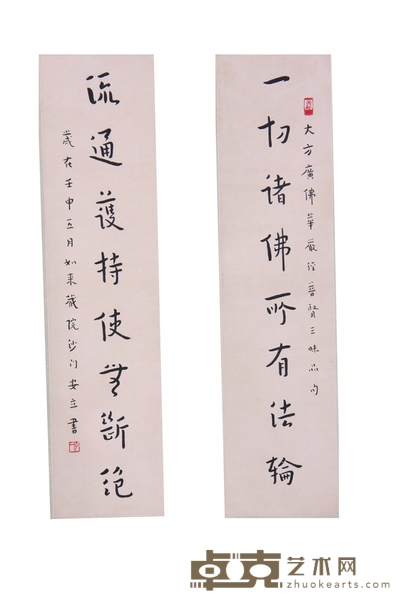 大方廣佛華嚴經普賢三昧品句
一切諸佛所有法輪
流通護持使無斷絕
歲在壬申五月如來藏院沙门安立書
卓克艺术网
zhuokearts.com